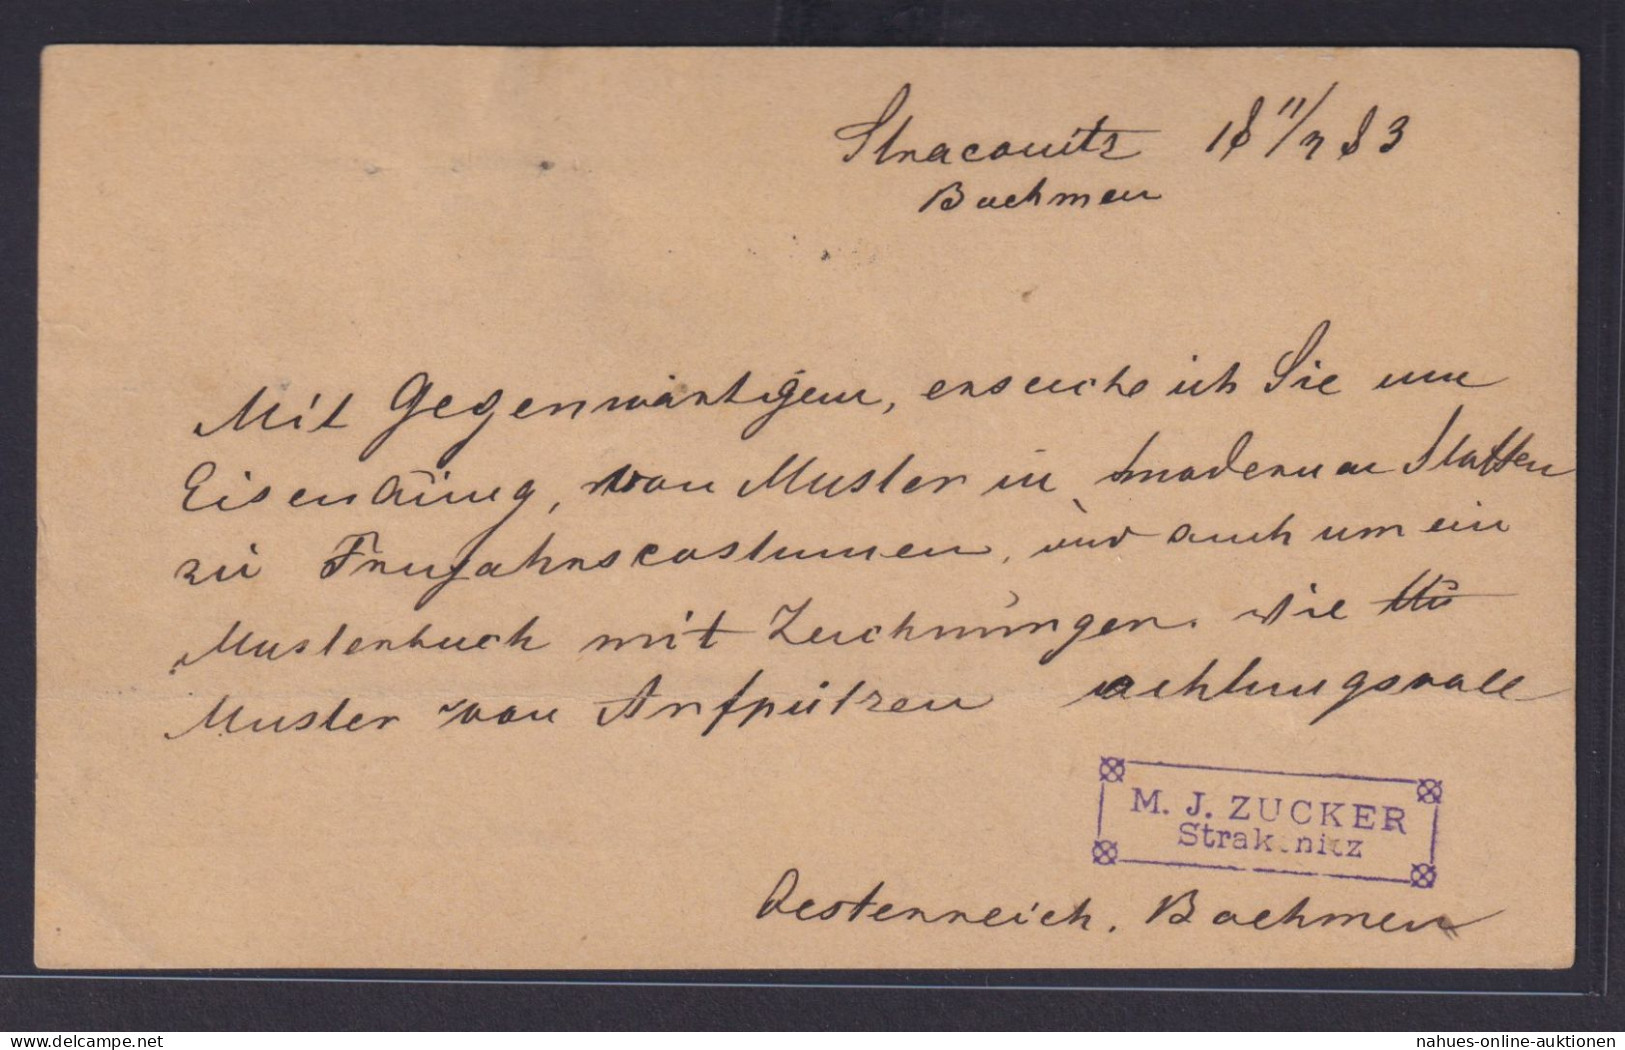 Straconitz 18 11/3 83
Boehmen
Mit Gegenwärtigem, ersuche ich Sie um
Eisendung, von Muster in modernen Stoffen
zu Frujahrscostumen, und auch um ein
Musterbuch mit Zeichnungen. wie
Muster von Aufpützen achtungsvoll
M. J. ZUCKER
Strak nitz
Oesterreich. Boehmen
nahues-online-auktionen